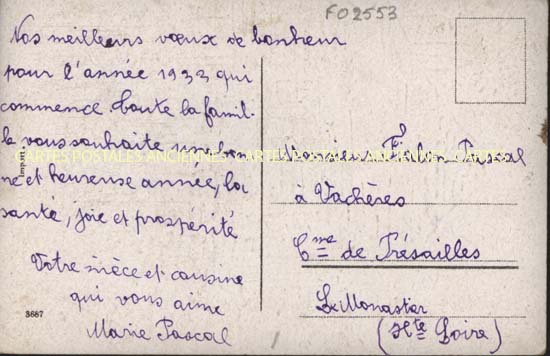 FO2553
Nos meilleurs vœux de bonheur
pour l'année 1933 qui
commence. Toute la famil-
le vous souhaite une bon
ne et heureuse année, la
santé, joie et prospérité
Votre nièce et cousine
qui vous aime
Marie Pascal
3667
Import.
CARTES POSTALES ANCIENNES CARTES POSTALES ANCIENNES CARTES POSTALES
Monsieur Pascal
à Vachères
Cme de Présailles
Le Monastier
(Hte Loire)